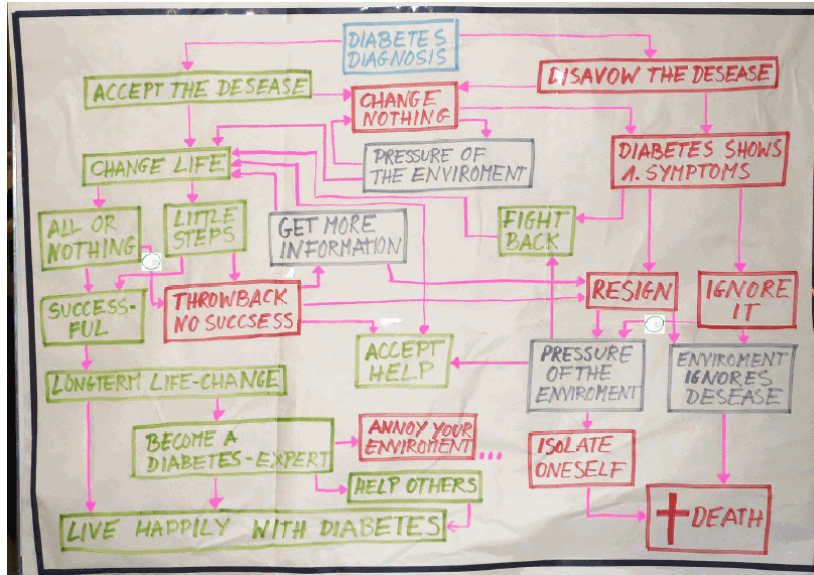 DIABETES
DIAGNOSIS
ACCEPT THE DESEASE
DISAVOW THE DESEASE
CHANGE
NOTHING
CHANGE LIFE
PRESSURE OF
THE ENVIROMENT
DIABETES SHOWS
1. SYMPTOMS
ALL OR
NOTHING
LITTLE
STEPS
GET MORE
INFORMATION
FIGHT
BACK
SUCCESS-
FUL
THROWBACK
NO SUCSESS
RESIGN
IGNORE
IT
ACCEPT
HELP
PRESSURE
OF THE
ENVIROMENT
ENVIROMENT
IGNORES
DESEASE
LONGTERM LIFE-CHANGE
BECOME A
DIABETES-EXPERT
ANNOY YOUR
ENVIROMENT...
ISOLATE
ONESELF
HELP OTHERS
LIVE HAPPILY WITH DIABETES
DEATH